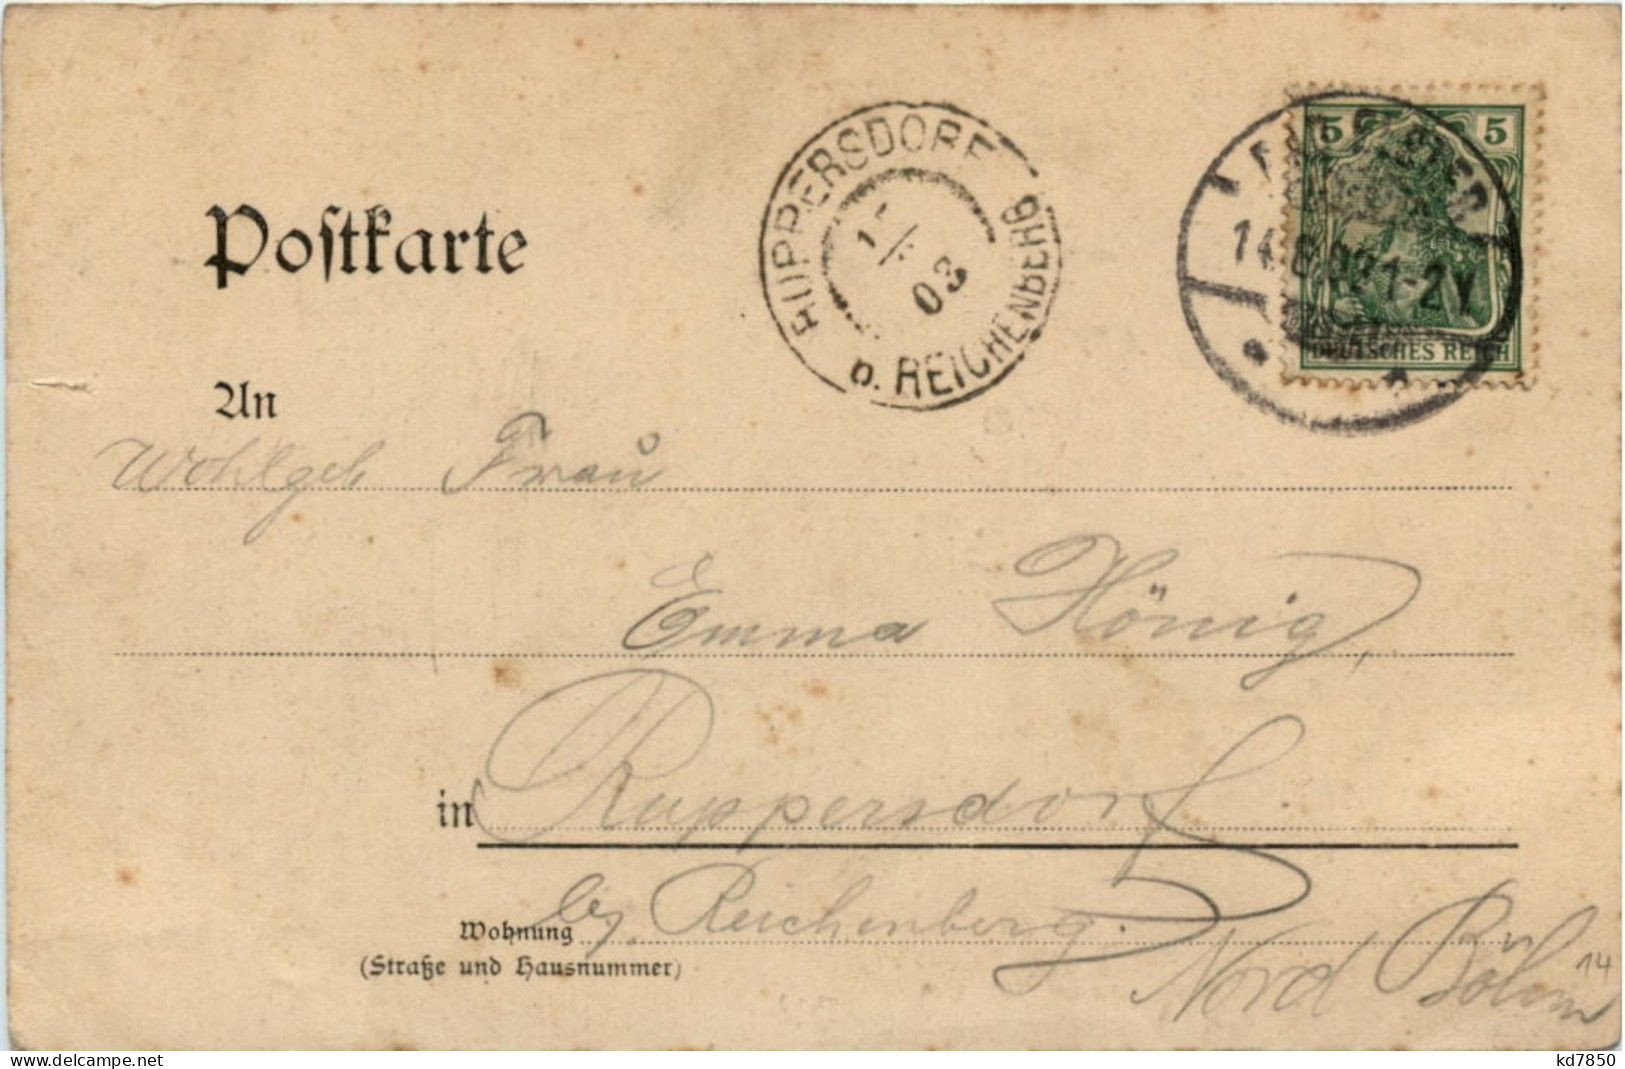 Postkarte
RUPPERSDORF
b. REICHENBERG
15
03
5 5
14.6.03 1-2N
DEUTSCHES REICH
An
Wohlgeb Frau
Emma König,
in Ruppersdorf
bey Reichenberg.
Wohnung
(Straße und Hausnummer)
Nord Böhm
14
www.delcampe.net
kd7850